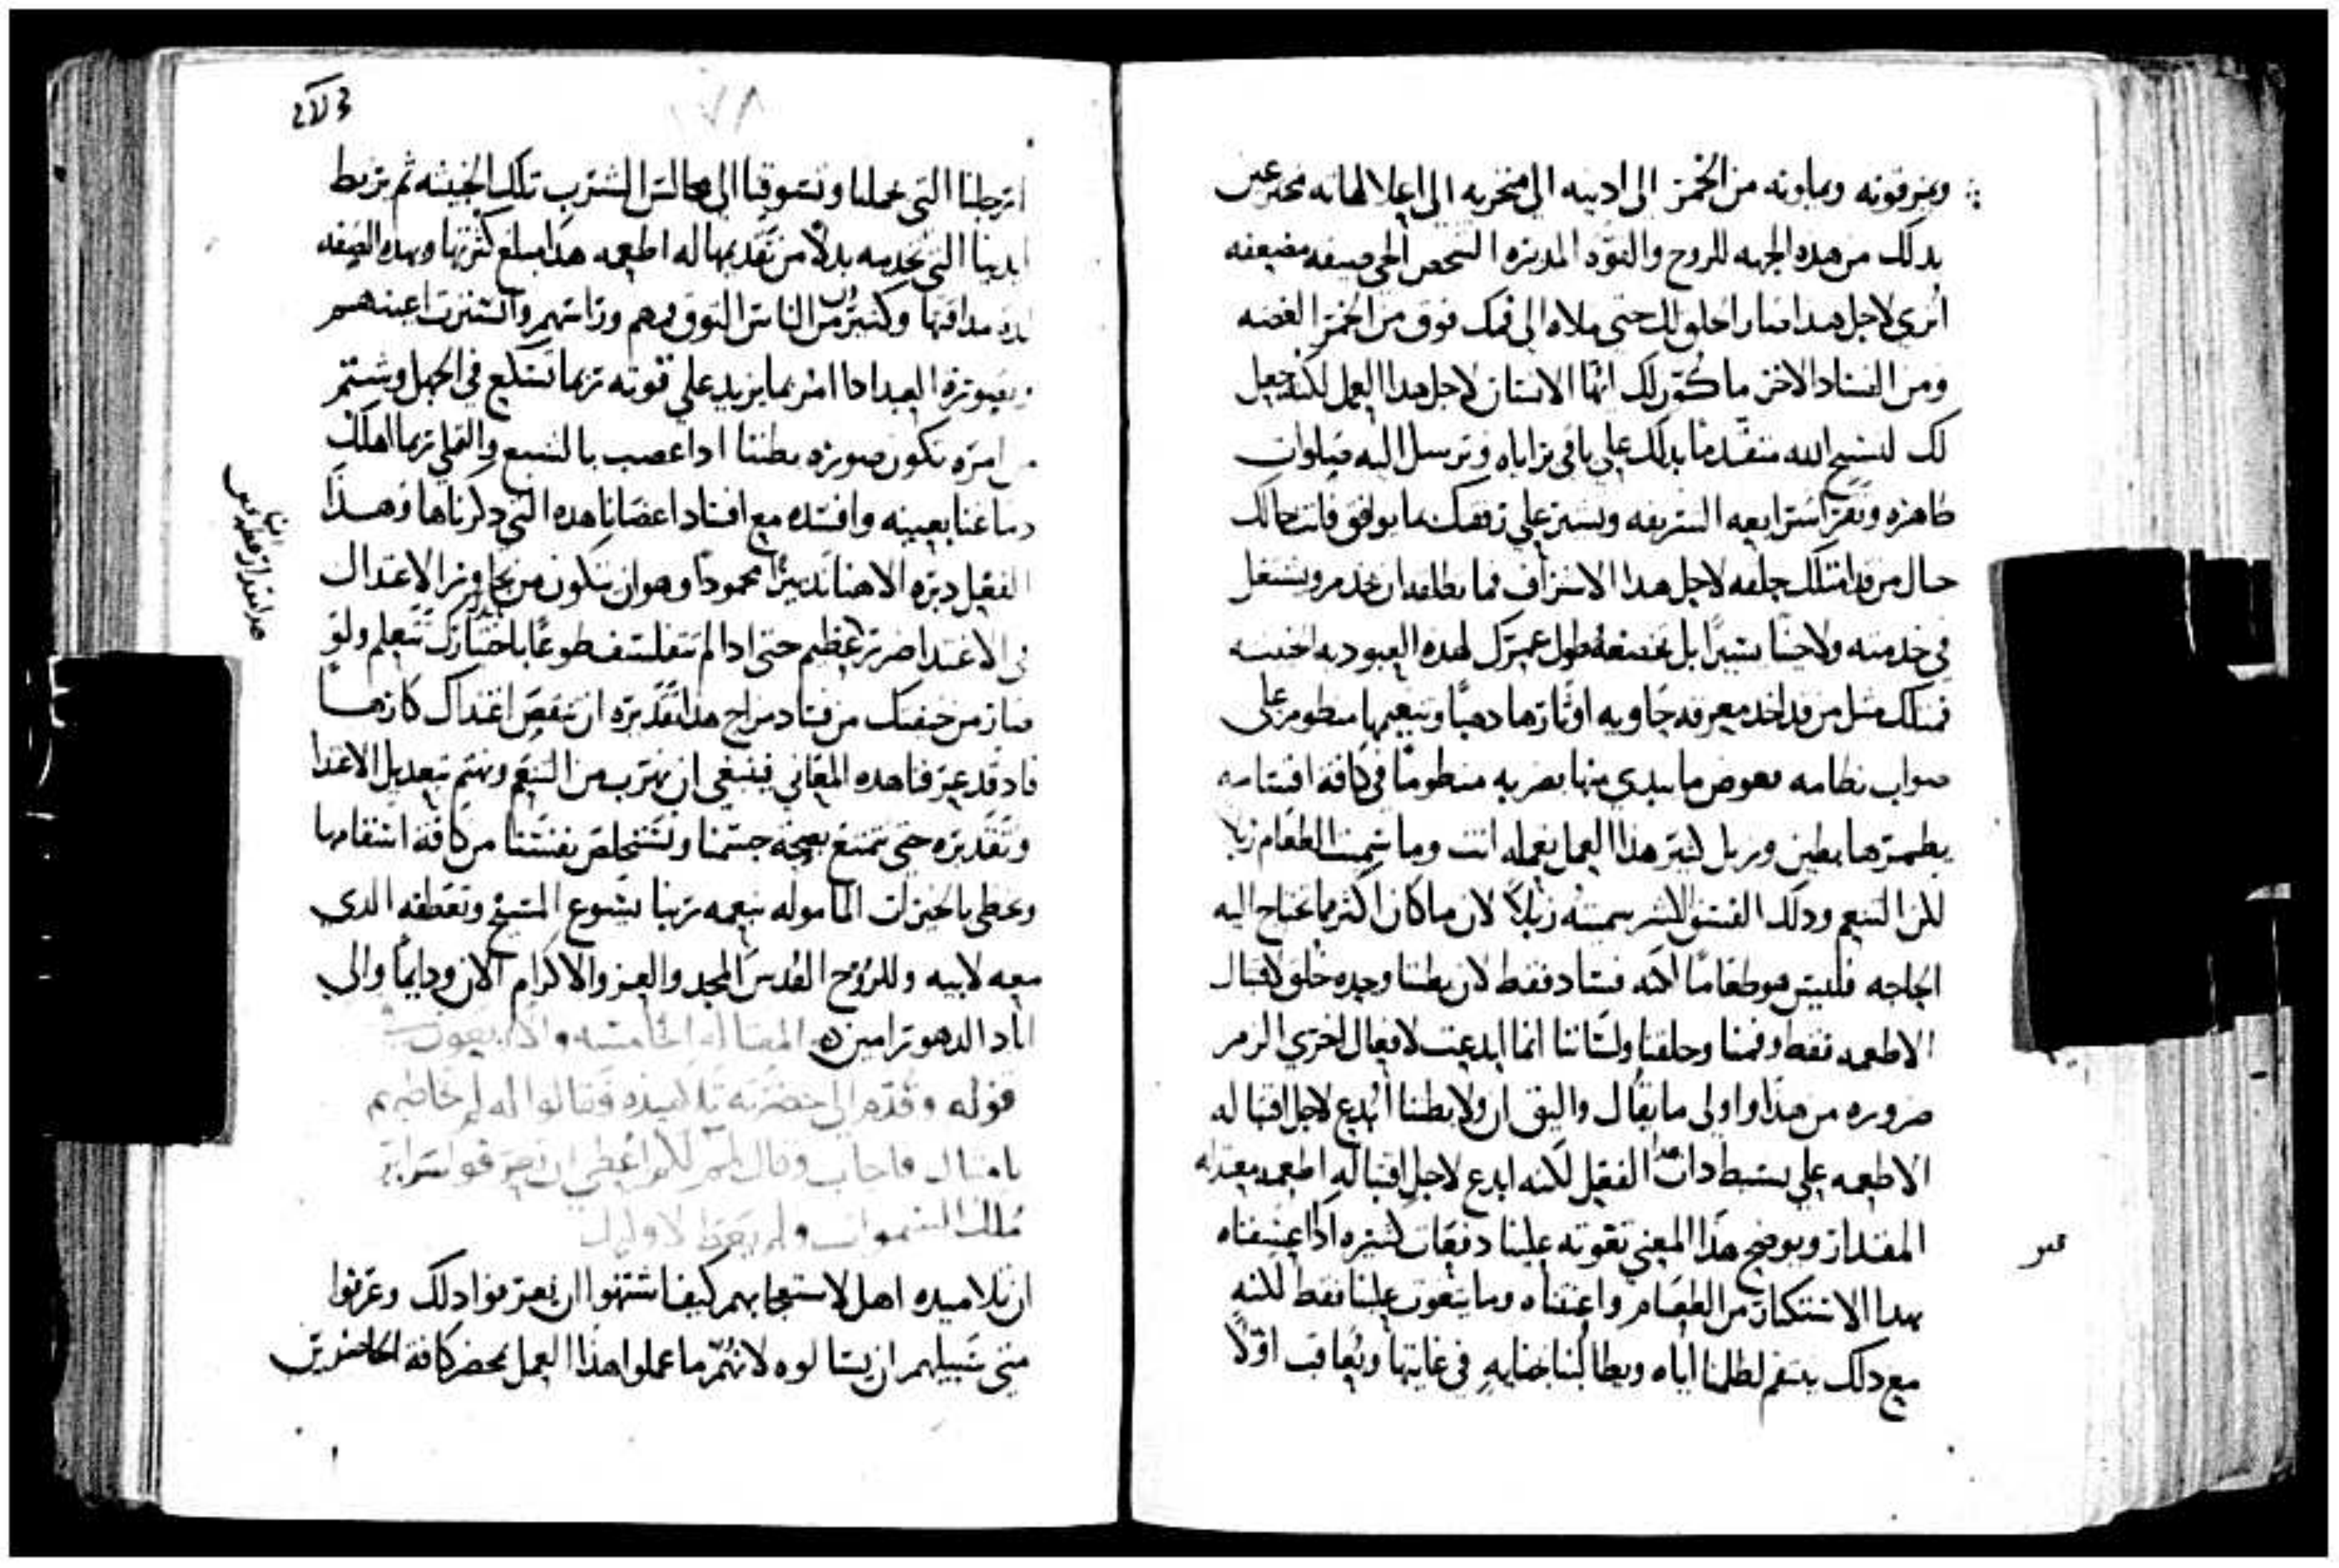 ويغرقونه ويملونه من الخمر الى ادنيه الى منخريه الى اعلا لهاته مخترعين
بدلك من هده الجهه للروح والقوه المدبره الشخص الحي صيفه مضيعفه
اترى لاجل هدا صار احلق لك حتى تملاه الى فمك فوق من الخمر الغضه
ومن الفساد الاخر ما كُوّن لك ايّها الانسان لاجل هدا العمل لكنه جعل
لك لتسبح الله متقدمًا بدلك على باقي براياه وترسل اليه صلوات
طاهره وتقرا شرايعه الشريفه وتشير على رفيقك بما يوافق فانت حالك
حال من قد امتلك حلقه لاجل هدا الاسراف فما تطلقه ان يخدم ويشتغل
في خدمته ولا حينًا يسيرًا بل تخضعهُ طول عمرك لهده العبوديه الخبيثه
فمثلك مثل من قد اخد معرفه حاويه اوتارها دهبًا ونغمها منظومه على
صواب نظامه فعوض ما يبدي منها بضربه منظومًا في كافة اقسامه
يطمرها بطين وزبل كثير هدا العمل تعمله انت وما سميت الطعام زبلاً
لكن التنعم ودلك الفسق الكثير سميته زبلاً لان ما كان اكثر مما نحتاج اليه
الحاجه فليس هو طعامًا لكنه فساد فقط لان بطننا وحده خلق لاقتبال
الاطعمه فقط وفمنا وحلقنا ولساننا انما ابدعت لافعال اخرى الزم
ضروره من هدا واولى ما يقال واليق ان ولا بطننا ابدع لاجل اقتباله
الاطعمه على بسيط دات الفعل لكنه ابدع لاجل اقتباله اطعمه معتدله
المقدار ويوضح هدا المعنى تقوته علينا دفعات كثيره ادا عنفناه
بهدا الاستكثار من الطعام واعنفناه وما يتقوت علينا فقط لكنه
مع دلك ينتقم لظلمنا اياه ويطالبنا بجنايه في غايتها ويعاقب اوّلاً
ارجلنا التي تحملنا وتسوقنا الى مجالس الشرب تلك الخبيثه ثم يربط
ايدينا التي تخدمه بدلاً من تقديمها له اطعمه هدا مبلغ كثرتها وبهده الصفه
لدة مداقتها وكثيرون من الناس التوى فمهم وراسهم وانتثرت اعينهم
وبصورة العبد ادا امر بما يزيد على قوته ربما تسكع في الجهل وشتم
من امره تكون صورة بطننا ادا غصب بالشبع والملي ربما اهلك
دماغنا بعينه وافسده مع افساد اعضانا هده التي دكرناها وهدا
الفعل دبره الاهنا تدبيرًا محمودًا وهو ان يتكون من تجاوز الاعتدال
في الاغتدا ضرر عظيم حتى ادا لم تتفلسف طوعًا باختيارك تتعلم ولو
صار من خيفتك من فساد مزاج هدا تقديره ان تنقص اغتداك كارهًا
فاد قد عرفنا هده المعاني فينبغي ان نهرب من التنعم ونهتم بتعديل الاغدا
وتقديره حتى نتمتع بصحة جسمنا ونستخلص نفسنا من كافة اسقامها
ونحظى بالخيرات المامولة بنعمه ربنا يشوع المسيح وتعطفه الدي
معه لابيه وللروح القدس المجد والعز والاكرام الان ودايمًا والى
اباد الدهور امين المقاله الخامسه والاربعون
قوله وتقدم الى حضرته تلاميده وقالوا له لم تخاطبهم
بامثال فاجاب وقال لهم لكم اعطي ان تعرفوا سراير
ملك السموات ولم يعط لاوليك
ان تلاميده اهل لاستعجابهم كيف اشتهوا ان يعرفوا دلك وعرفوا
متى سبيلهم ان يسالوه لانهم ما عملوا هدا العمل بمحضر كافة الحاضرين